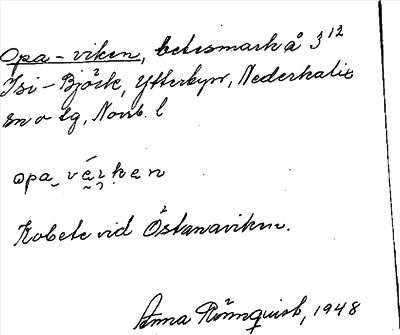 Opa-viken, betesmark å 3¹²
Isi-Björk, Ytterbyn, Nederkalix
sn o tg, Norrb. l
opa vä́ı̣ken
Kobete vid Östanaviken.
Anna Rönnquist, 1948